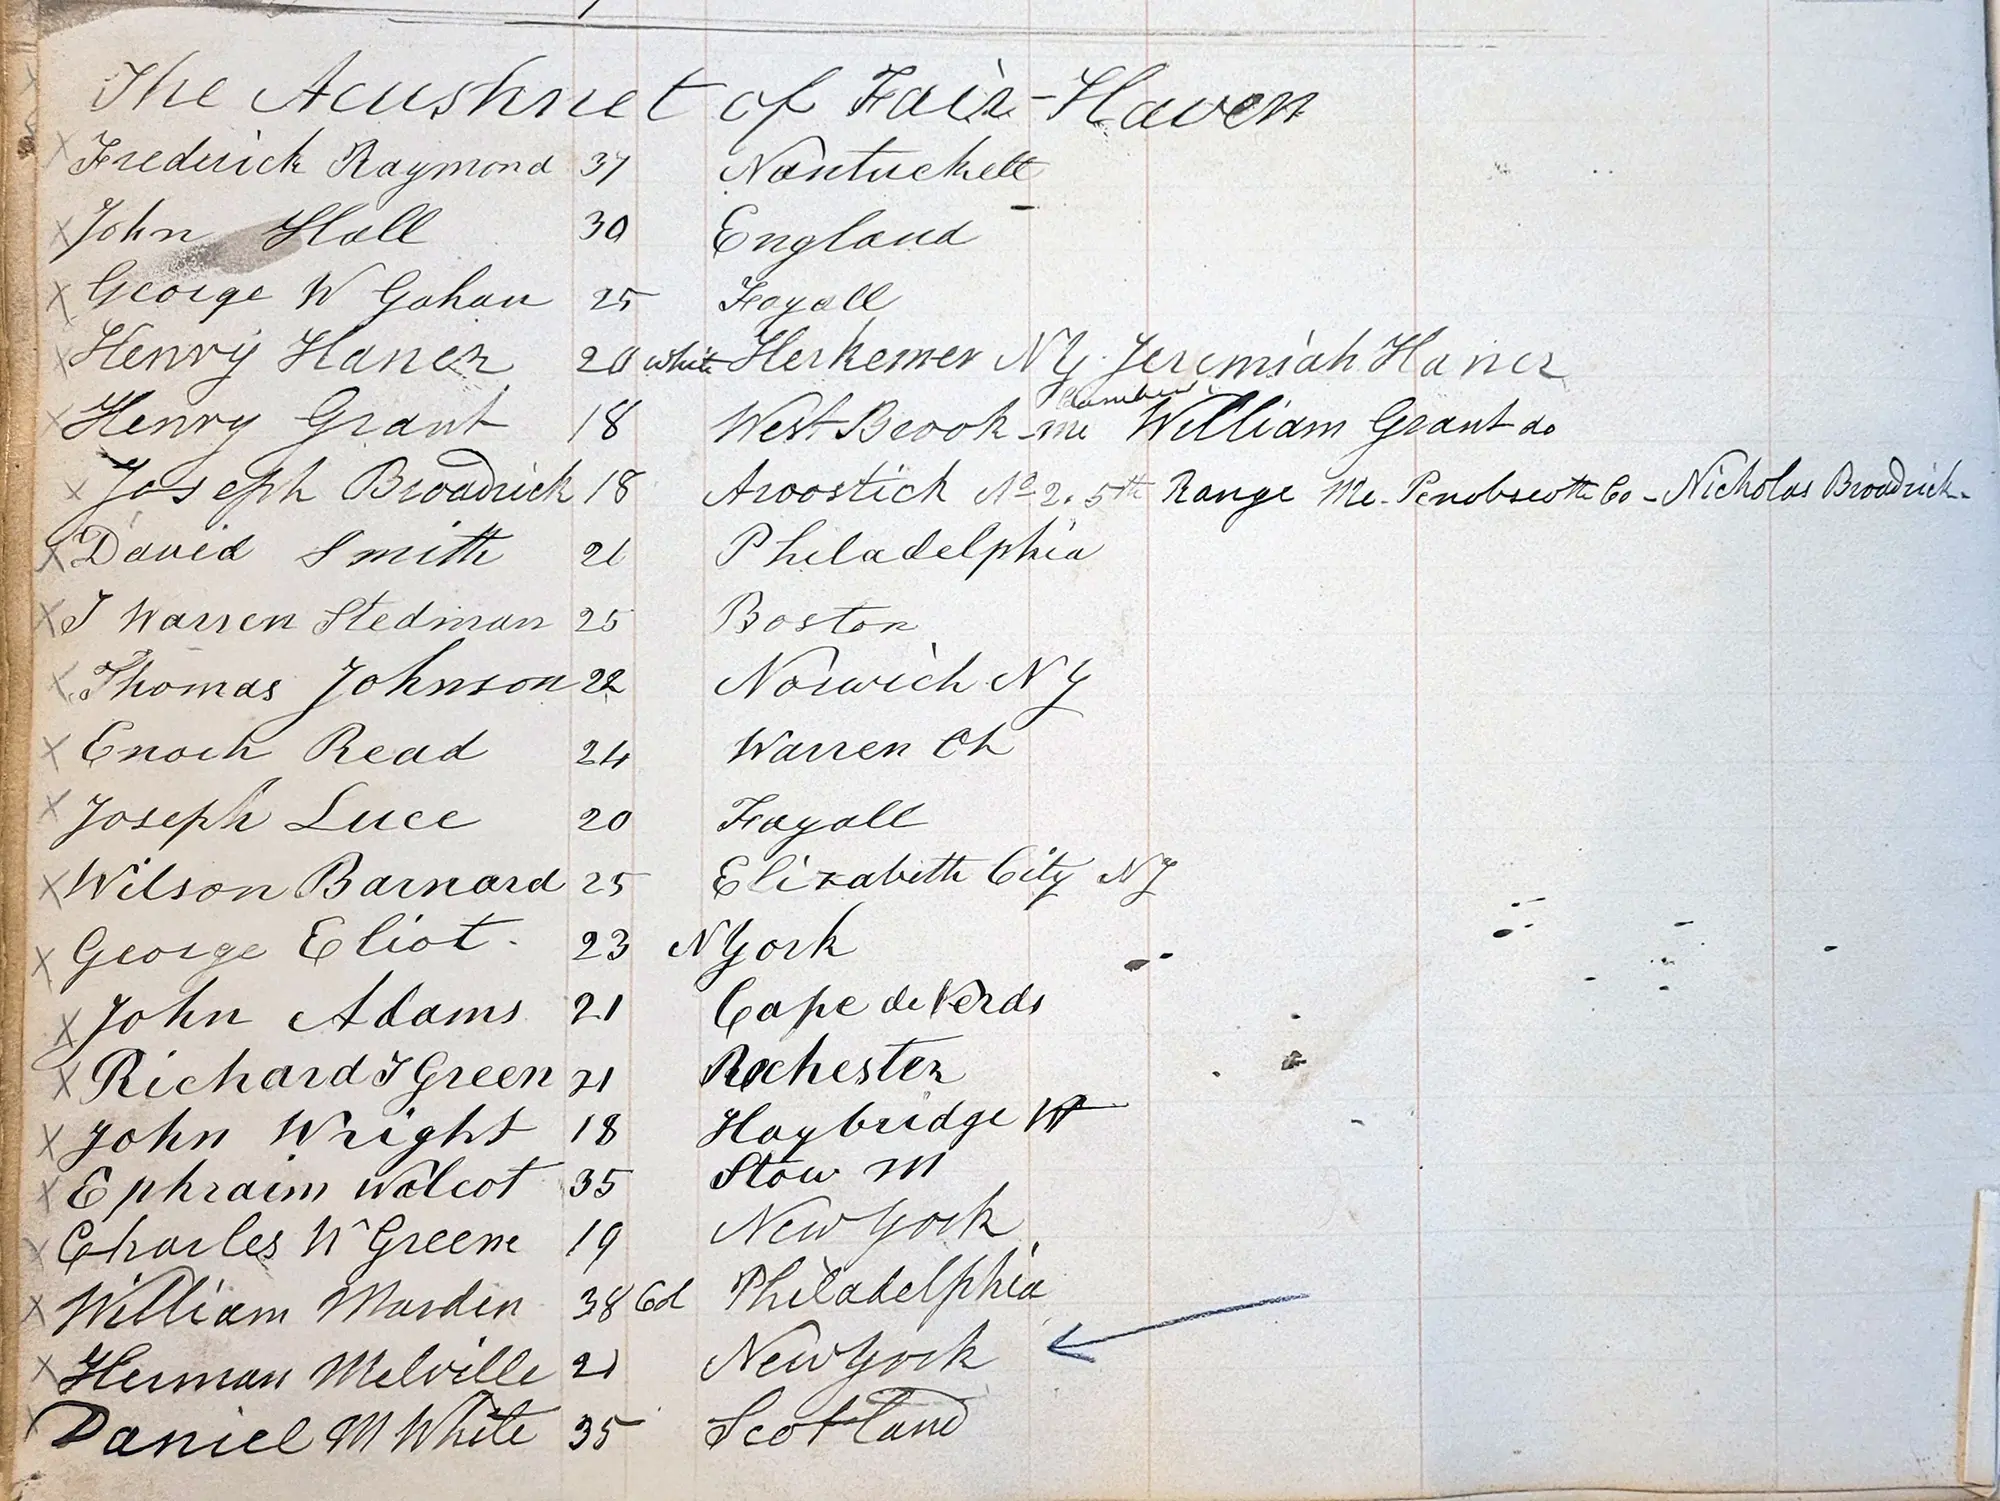 The Acushnet of Fair-Haven
Frederick Raymond 37 Nantuckett
John Hall 30 England
George W Gahan 25 Fayall
Henry Haner 20 white Herkemer NY. Jeremiah Haner
Henry Grant 18 West Brook me William Grant do
Joseph Broadrick 18 Aroostick No 2. 5th Range Me. Penobscoth Co - Nicholas Broadrick.
David Smith 21 Philadelphia
J Warren Stedman 25 Boston
Thomas Johnson 22 Norwich NY
Enoch Read 24 Warren
Joseph Luce 20 Fayall
Wilson Barnard 25 Elizabeth City NJ
George Eliot. 23 N York
John Adams 21 Cape de Verds
Richard T Green 21 Rochester
John Wright 18 Haybridge
Ephraim Walcot 35 Stow M
Charles W Greene 19 New York
William Marden 38 Cd Philadelphia
Herman Melville 21 New York
Daniel M White 35 Scotland